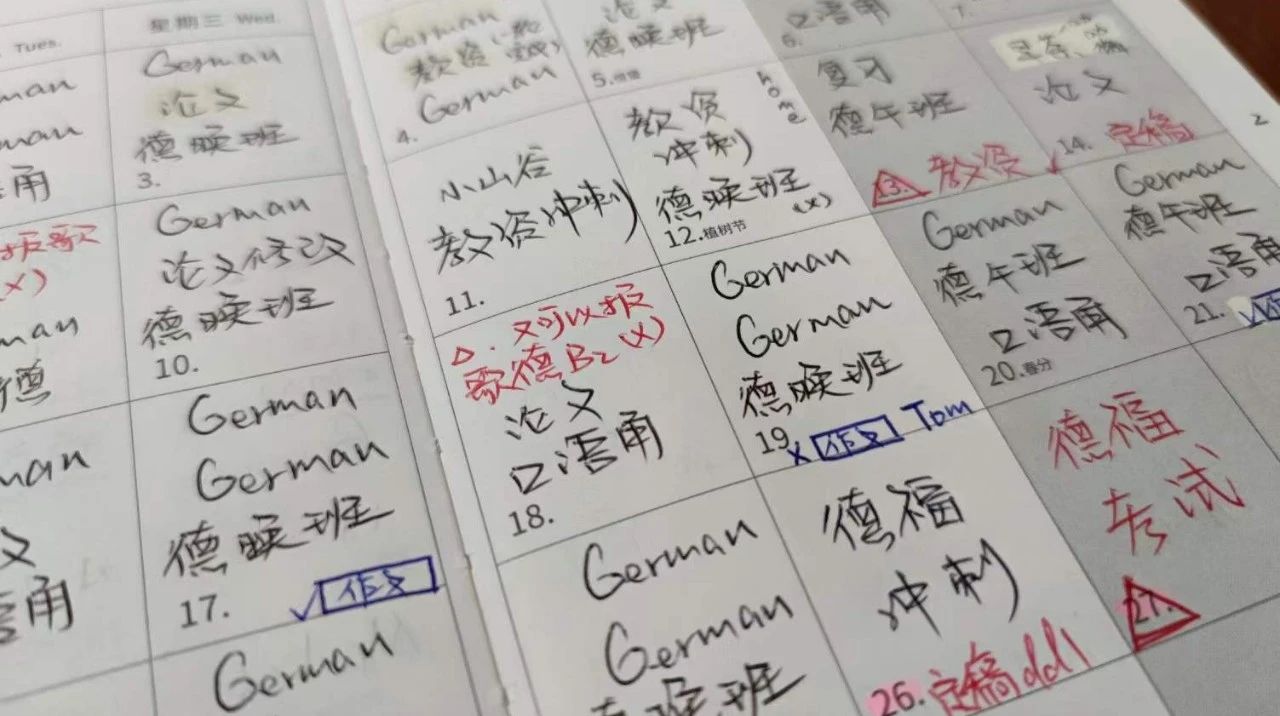 Tues.
man
man
语角
报歌
(x)
man
德
man
文
语角
星期三 Wed.
German
论文
德晚班
3.
German
论文修改
德晚班
10.
German
German
德晚班
17.
√ 作文
German
German
教资
German
4.
小山谷
教资冲刺
11.
△. 又可以报
歌德B2 (x)
论文
口语角
18.
German
German
德晚班
论文
德晚班
5.
教资
冲刺
home
德晚班
(x)
12.植树节
German
German
德晚班
19. x 作文 Tom
德福
冲刺
26. 定稿ddl
口语角
6.
复习
德午班
13. 教资
German
德午班
口语角
20.春分
德福
考试
27.
7.
论文
14. 定稿
German
德午班
口语角
21. √
2